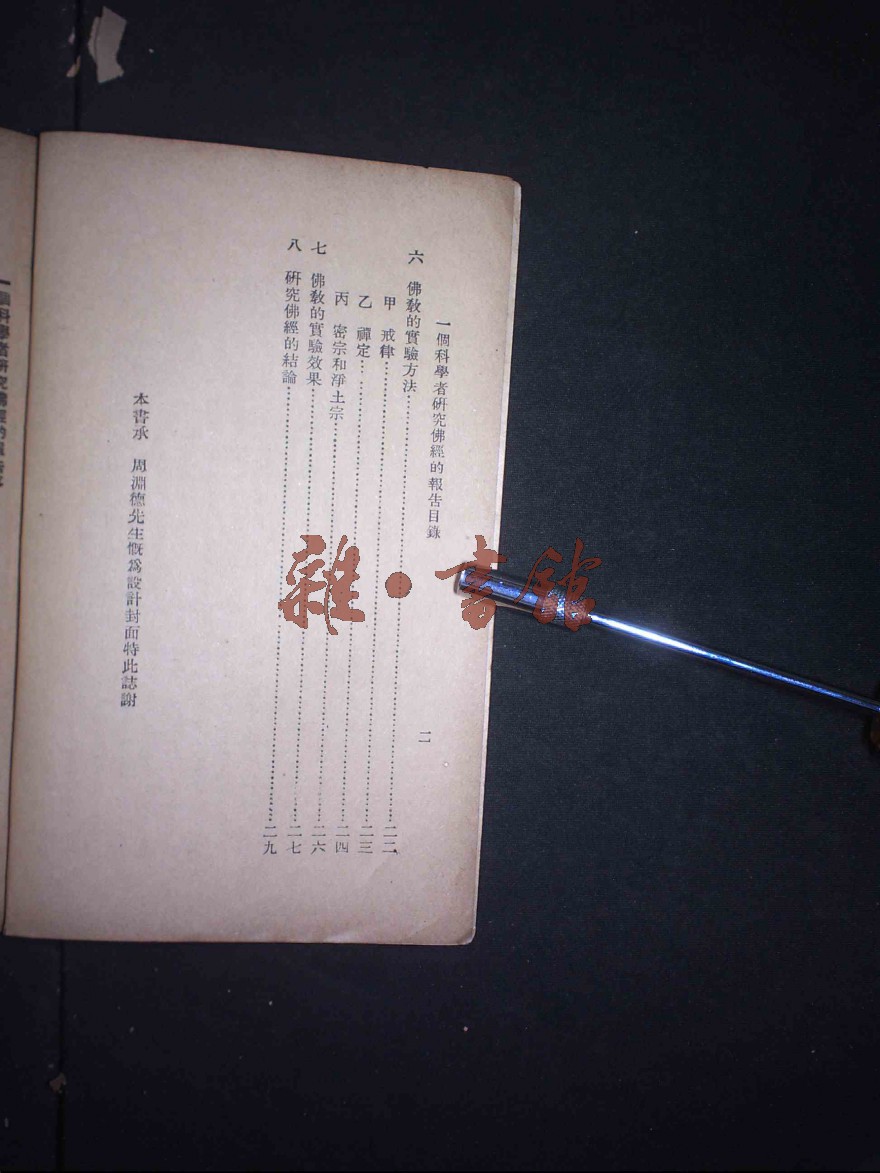 一個科學者研究佛經的報告目錄 二
六 佛教的實驗方法……二二
甲 戒律……二三
乙 禪定……二四
丙 密宗和淨土宗……二六
七 佛教的實驗效果……二七
八 研究佛經的結論……二九
本書承 周淵德先生慨爲設計封面特此誌謝
一個科學者研究佛經的報告
雜·書館